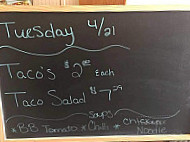 Tuesday 4/21
Taco's $2 00 Each
Taco Salad $7 29
Soups
* BB Tomato * Chili * Chicken Noodle